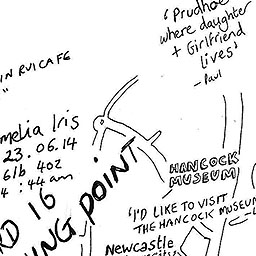 'Prudhoe
where daughter
+ Girlfriend
lives'
- Paul
IN RVI CAFE
"
melia Iris
23.06.14
61b 4oz
4:44am
HANCOCK
MUSEUM
RD 16
ING POINT
'I'D LIKE TO VISIT
THE HANCOCK MUSEUM
Newcastle